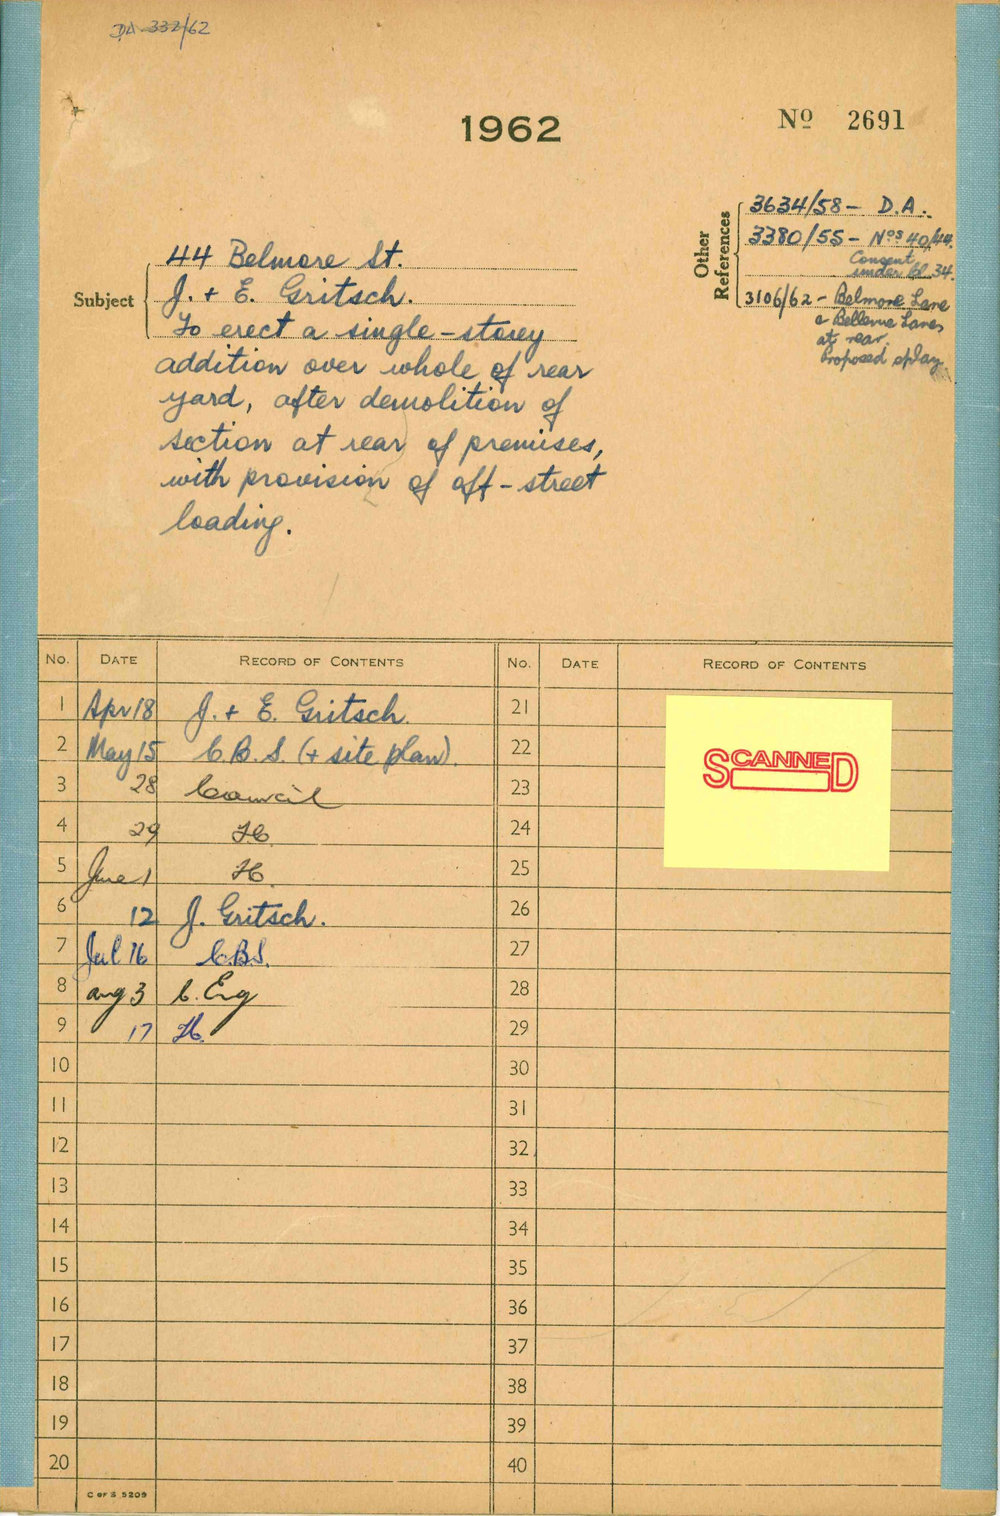 DA 332/62
1962
No 2691
Other References
3634/58 - D.A.
3380/55 - Nos 40/44.
Consent
under cl. 34.
3106/62 - Belmore Lane
& Bellevue Lanes
at rear.
Proposed splay
Subject
44 Belmore St.
J. + E. Gritsch.
To erect a single-storey
addition over whole of rear
yard, after demolition of
section at rear of premises,
with provision of off-street
loading.
No. DATE RECORD OF CONTENTS
1 Apr 18 J. + E. Gritsch.
2 May 15 C.B.S. (+ site plan).
3 28 Council
4 29 H.
5 June 1 H.
6 12 J. Gritsch.
7 Jul 16 C.B.S.
8 Aug 3 C. Eng
9 17 H.
10
11
12
13
14
15
16
17
18
19
20
C OF S 5209
No. DATE RECORD OF CONTENTS
21
22
23
24
25
26
27
28
29
30
31
32
33
34
35
36
37
38
39
40
SCANNED